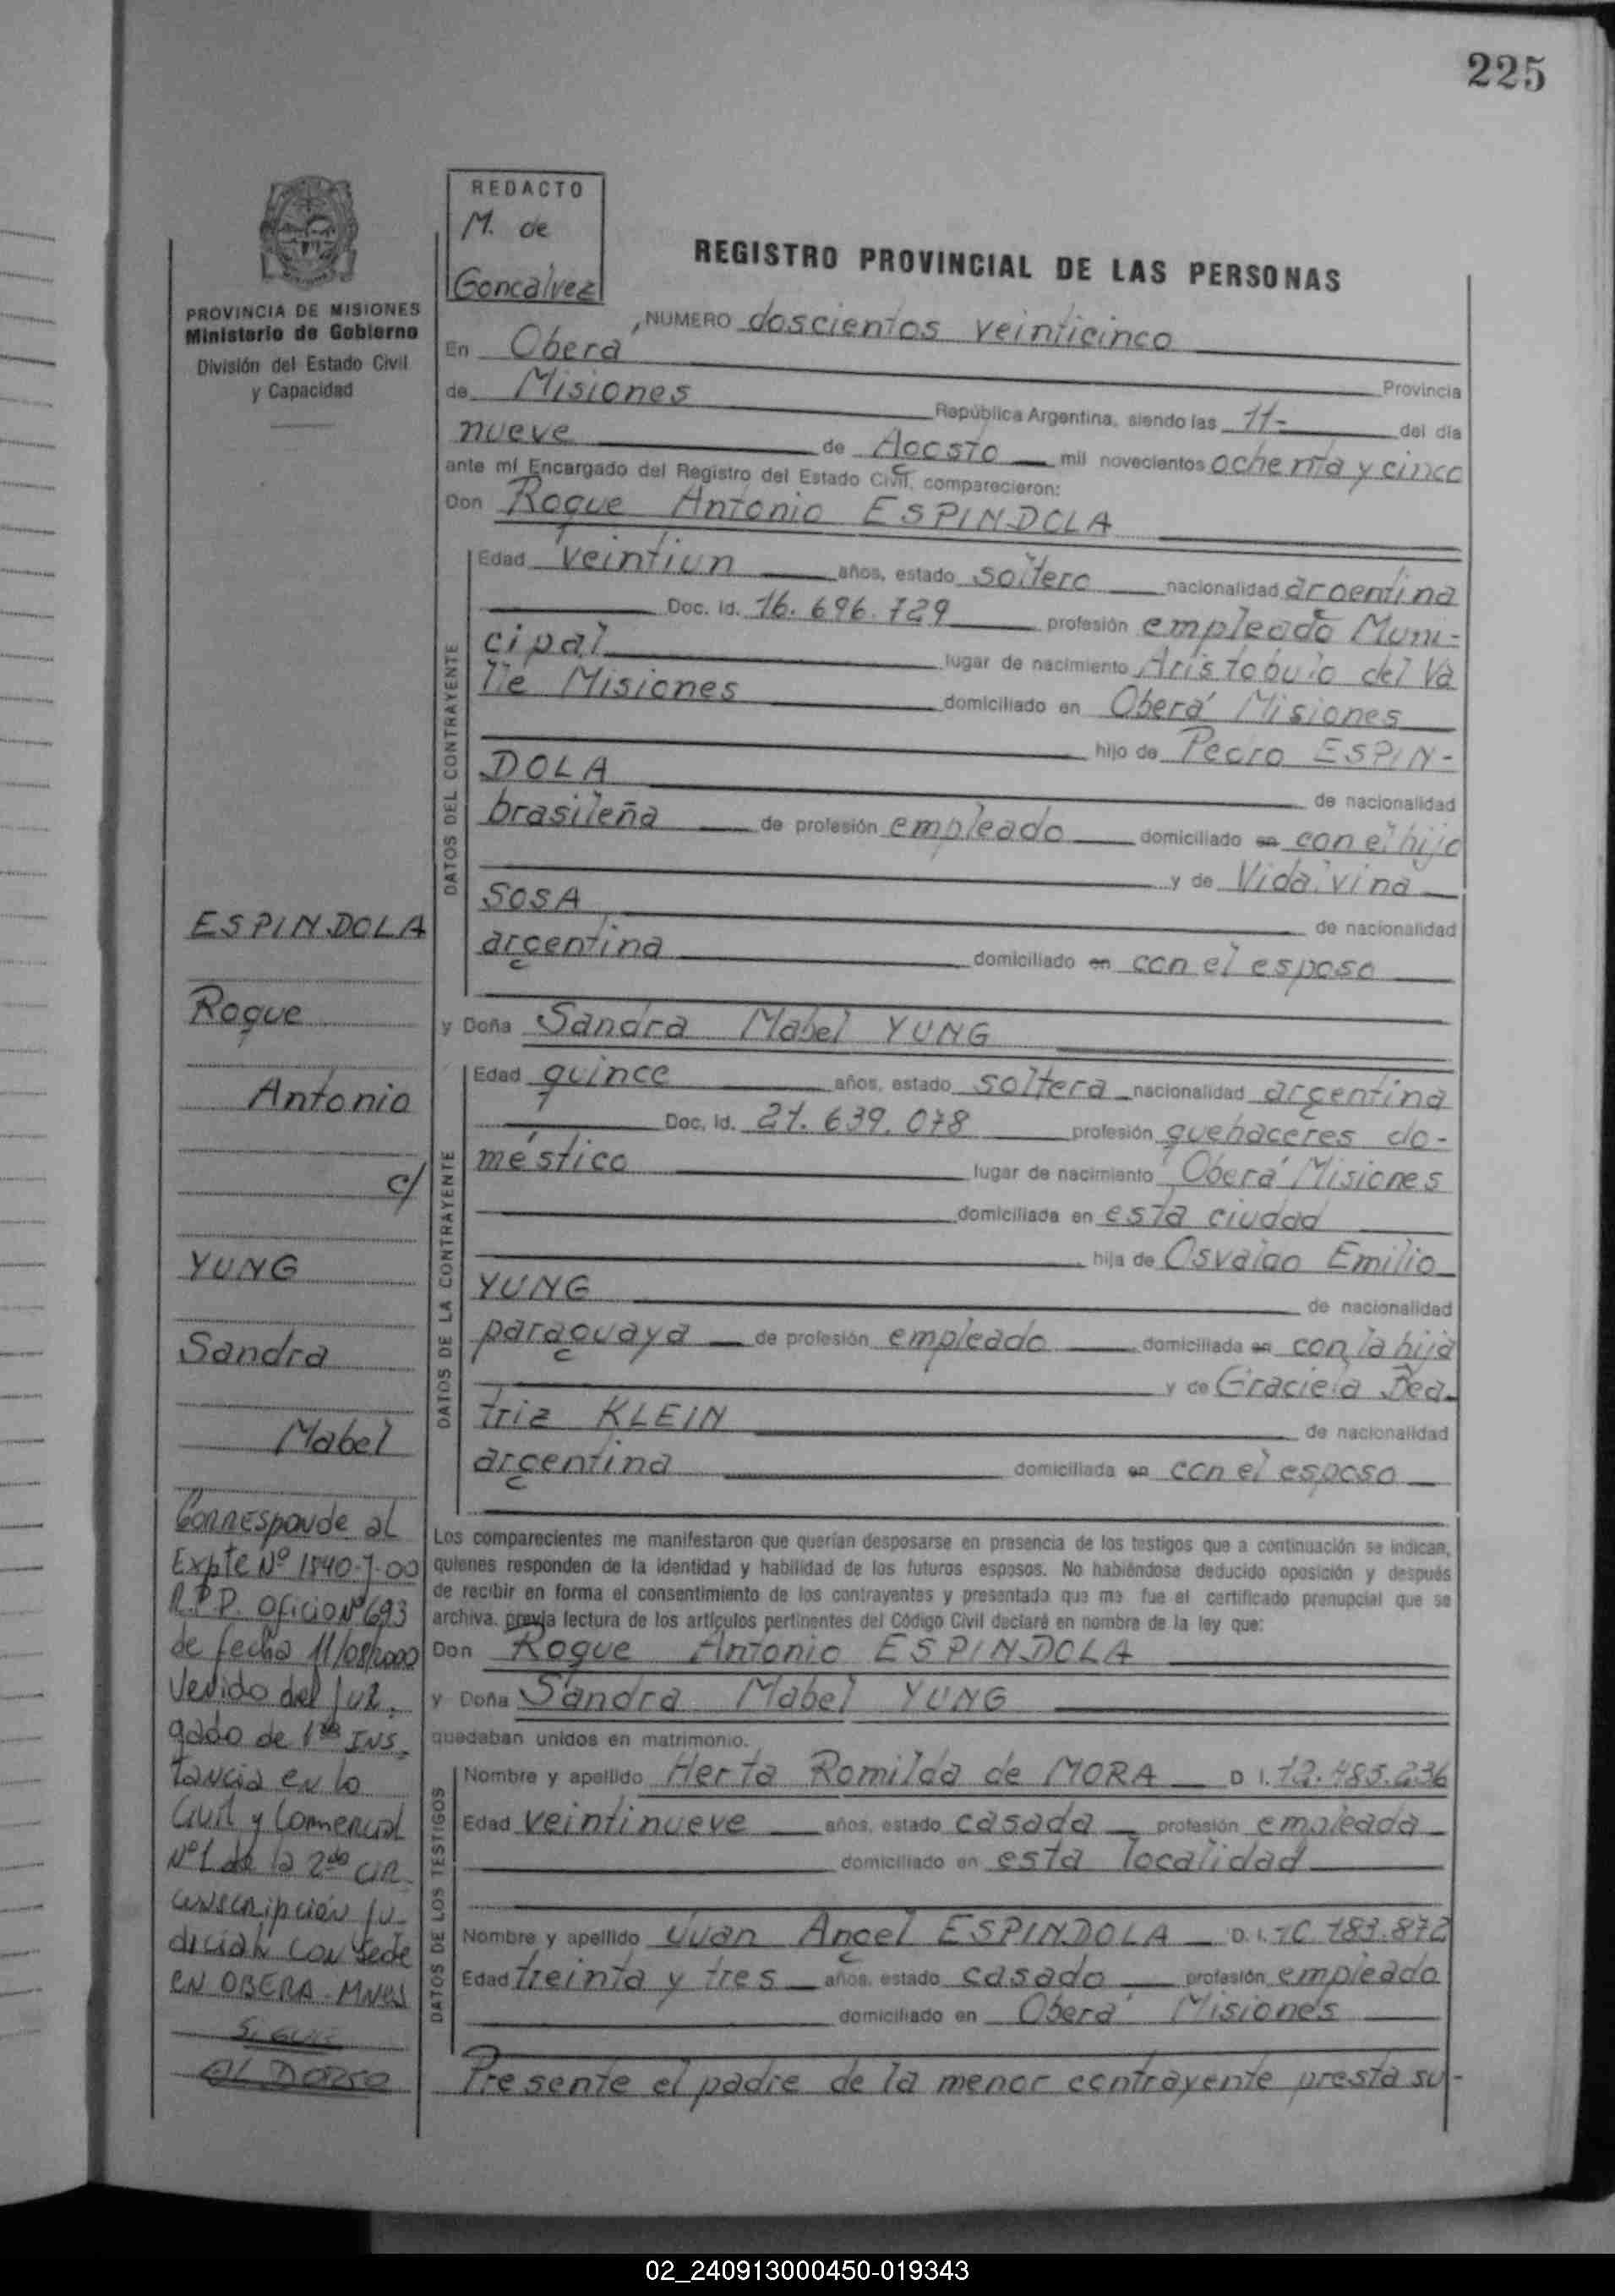 225
REDACTO
M. de
Goncalvez
PROVINCIA DE MISIONES
Ministerio de Gobierno
División del Estado Civil
y Capacidad
REGISTRO PROVINCIAL DE LAS PERSONAS
NUMERO doscientos veinticinco
En Oberá Provincia
de Misiones República Argentina, siendo las 11- del día
nueve de Agosto mil novecientos ochenta y cinco
ante mí Encargado del Registro del Estado Civil, comparecieron:
Don Roque Antonio ESPINDOLA
DATOS DEL CONTRAYENTE
Edad veintiun años, estado soltero nacionalidad argentina
Doc. Id. 16.696.729 profesión empleado Muni-
cipal lugar de nacimiento Aristobulo del Va
lle Misiones domiciliado en Oberá Misiones
hijo de Pedro ESPIN-
DOLA de nacionalidad
brasileña de profesión empleado domiciliado en con el hijo
y de Vidalvina
SOSA de nacionalidad
argentina domiciliado en con el esposo
y Doña Sandra Mabel YUNG
DATOS DE LA CONTRAYENTE
Edad quince años, estado soltera nacionalidad argentina
Doc. Id. 21.639.078 profesión quehaceres do-
méstico lugar de nacimiento Oberá Misiones
domiciliada en esta ciudad
hija de Osvaldo Emilio
YUNG de nacionalidad
paraguaya de profesión empleado domiciliada en con la hija
y de Graciela Bea-
triz KLEIN de nacionalidad
argentina domiciliada en con el esposo
Los comparecientes me manifestaron que querían desposarse en presencia de los testigos que a continuación se indican,
quienes responden de la identidad y habilidad de los futuros esposos. No habiéndose deducido oposición y después
de recibir en forma el consentimiento de los contrayentes y presentado que me fue el certificado prenupcial que se
archiva, previa lectura de los artículos pertinentes del Código Civil declaré en nombre de la ley que:
Don Roque Antonio ESPINDOLA
y Doña Sandra Mabel YUNG
quedaban unidos en matrimonio.
DATOS DE LOS TESTIGOS
Nombre y apellido Herta Romilda de MORA D.I. 12.485.236
Edad veintinueve años, estado casada profesión empleada
domiciliado en esta localidad
Nombre y apellido Juan Angel ESPINDOLA D.I. 10.783.872
Edad treinta y tres años, estado casado profesión empleado
domiciliado en Oberá Misiones
Presente el padre de la menor contrayente presta su-
ESPINDOLA
Roque
Antonio
c/
YUNG
Sandra
Mabel
Corresponde al
Expte Nº 1840-7-00
R.P.P. Oficio Nº 693
de fecha 11/08/2000
Venido del Juz-
gado de 1ra INS-
tancia en lo
Civil y Comercial
Nº1 de la 2da CIR-
cunscripción Ju-
dicial con sede
EN OBERA-MNES
SIGUE
AL DORSO
02_240913000450-019343